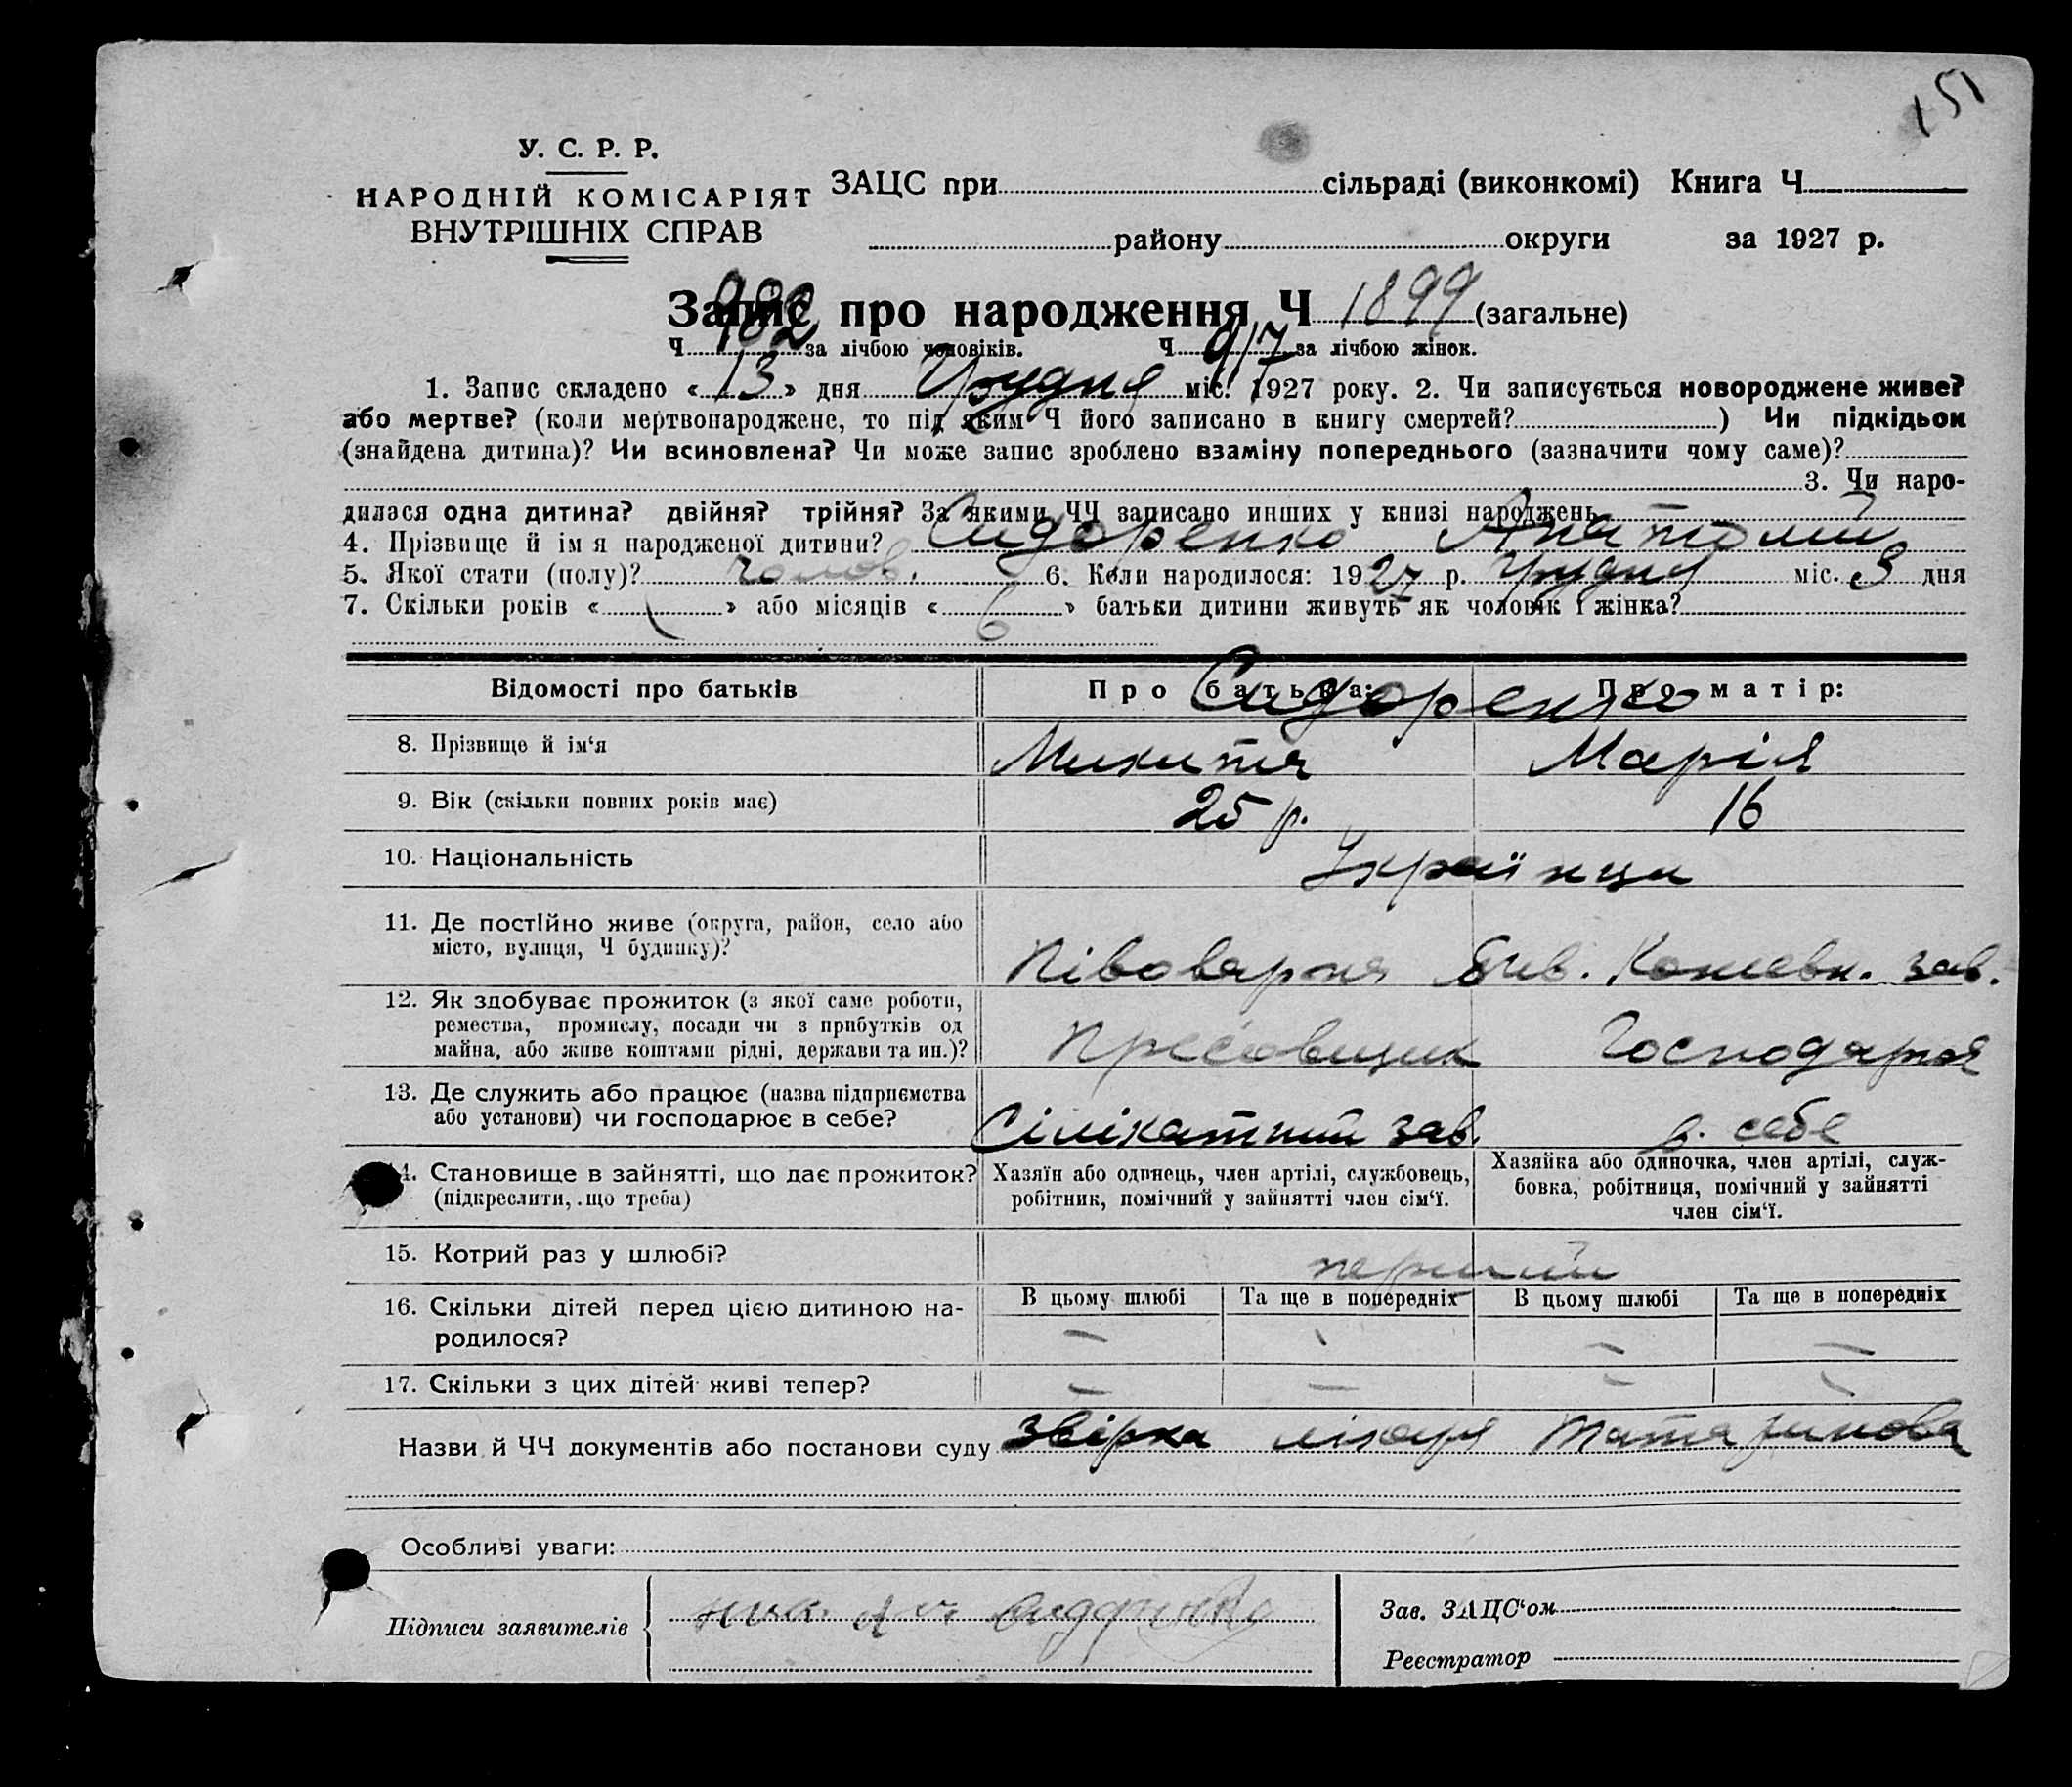 151
У. С. Р. Р.
НАРОДНІЙ КОМІСАРІЯТ
ВНУТРІШНІХ СПРАВ
ЗАЦС при сільраді (виконкомі) Книга Ч
району округи за 1927 р.
Запис про народження Ч 1899 (загальне)
Ч 982 за лічбою чоловіків. Ч 917 за лічбою жінок.
1. Запис складено « 13 » дня Грудня міс. 1927 року. 2. Чи записується новороджене живе?
або мертве? (коли мертвонароджене, то під яким Ч його записано в книгу смертей? ) Чи підкідьок
(знайдена дитина)? Чи всиновлена? Чи може запис зроблено взаміну попереднього (зазначити чому саме)?
3. Чи наро-
дилася одна дитина? двійня? трійня? За якими ЧЧ записано инших у книзі народжень
4. Прізвище й ім я народженої дитини? Сидоренко Анатолий
5. Якої стати (полу)? чолов. 6. Коли народилося: 1927 р. Грудня міс. 3 дня
7. Скільки років « » або місяців « 6 » батьки дитини живуть як чоловік і жінка?
Відомості про батьків Про батька: Про матір:
Сидоренко
8. Прізвище й ім‘я Микита Марія
9. Вік (скільки повних років має) 25 р. 16
10. Національність Українци
11. Де постійно живе (округа, район, село або
місто, вулиця, Ч будинку)?
Півоварня бив. зав.
12. Як здобуває прожиток (з якої саме роботи,
ремества, промислу, посади чи з прибутків од
майна, або живе коштами рідні, держави та ин.)?
Пресовщик Господарка
13. Де служить або працює (назва підприємства
або установи) чи господарює в себе?
Сілікатний зав. в. себе
14. Становище в зайнятті, що дає прожиток?
(підкреслити, що треба)
Хазяїн або одинець, член артілі, службовець,
робітник, помічний у зайнятті член сім‘ї.
Хазяйка або одиночка, член артілі, служ-
бовка, робітниця, помічний у зайнятті
член сім‘ї.
15. Котрий раз у шлюбі? перший
16. Скільки дітей перед цією дитиною на-
родилося?
В цьому шлюбі Та ще в попередніх В цьому шлюбі Та ще в попередніх
— — — —
17. Скільки з цих дітей живі тепер? — — — —
Назви й ЧЧ документів або постанови суду звірка лікаря
Особливі уваги:
Підписи заявителів
Зав. ЗАЦС‘ом
Реєстратор